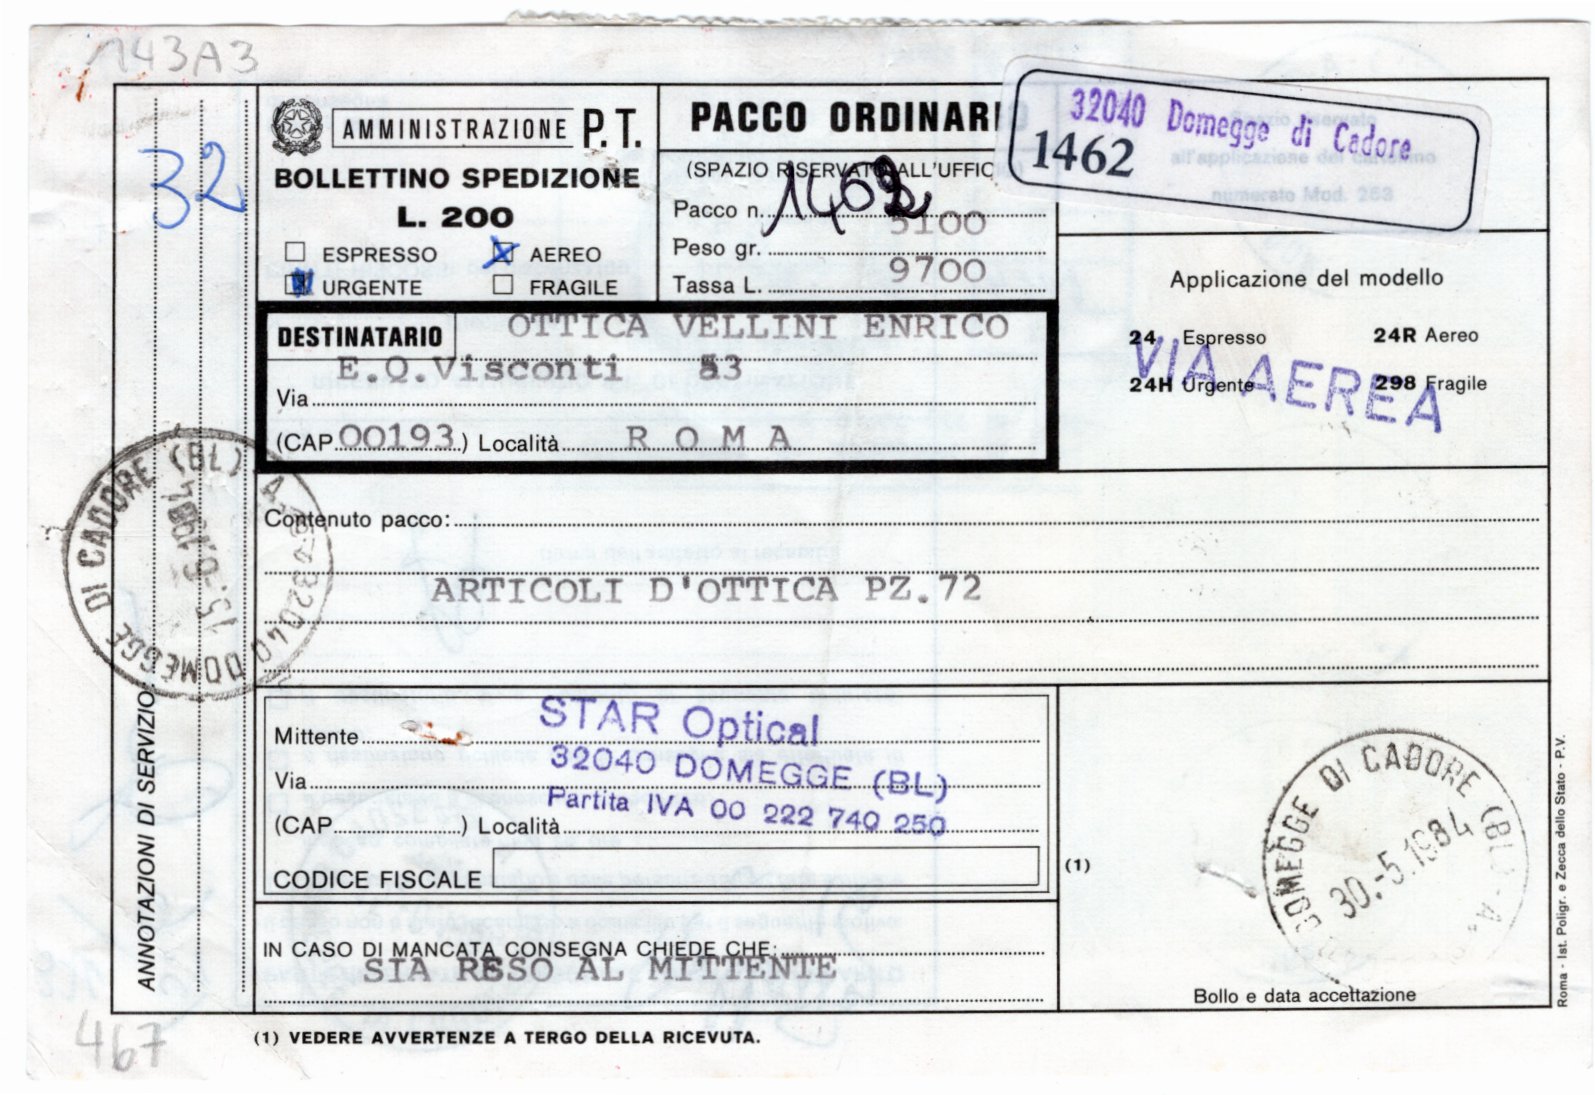 143A3
32
AMMINISTRAZIONE P.T.
BOLLETTINO SPEDIZIONE
L. 200
ESPRESSO AEREO
URGENTE FRAGILE
PACCO ORDINARI
(SPAZIO RISERVATO ALL'UFFIC
Pacco n. 1462
Peso gr. 5100
Tassa L. 9700
32040 Domegge di Cadore
1462
all'applicazione del cartellino
numerato Mod. 263
Applicazione del modello
24 Espresso 24R Aereo
24H Urgente 298 Fragile
VIA AEREA
DESTINATARIO OTTICA VELLINI ENRICO
E.Q.Visconti 53
Via
(CAP 00193) Località R O M A
Contenuto pacco:
ARTICOLI D'OTTICA PZ.72
DOMEGGE DI CADORE (BL)
32040
ANNOTAZIONI DI SERVIZIO:
Mittente STAR Optical
Via 32040 DOMEGGE (BL)
Partita IVA 00 222 740 250
(CAP ) Località
CODICE FISCALE
(1)
IN CASO DI MANCATA CONSEGNA CHIEDE CHE:
SIA RESO AL MITTENTE
DOMEGGE DI CADORE (BL) - A
30.-5.1984
Bollo e data accettazione
Roma - Ist. Poligr. e Zecca dello Stato - P.V.
(1) VEDERE AVVERTENZE A TERGO DELLA RICEVUTA.
467